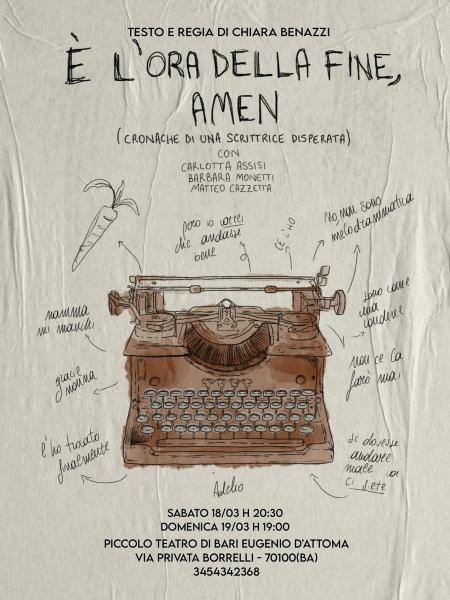 TESTO E REGIA DI CHIARA BENAZZI
È L'ORA DELLA FINE,
AMEN
(CRONACHE DI UNA SCRITTRICE DISPERATA)
CON
CARLOTTA ASSISI
BARBARA MONETTI
MATTEO CAZZETTA
però io vorrei
che andasse
bene
CE L'HO
No, non sono
melodrammatica
mamma
mi manchi
sono come
una
rondine
grazie
nonna
non ce la
farò mai
l'ho trovato
finalmente
se dovesse
andare
male
voi
ci siete
Addio
SABATO 18/03 H 20:30
DOMENICA 19/03 H 19:00
PICCOLO TEATRO DI BARI EUGENIO D'ATTOMA
VIA PRIVATA BORRELLI - 70100(BA)
3454342368